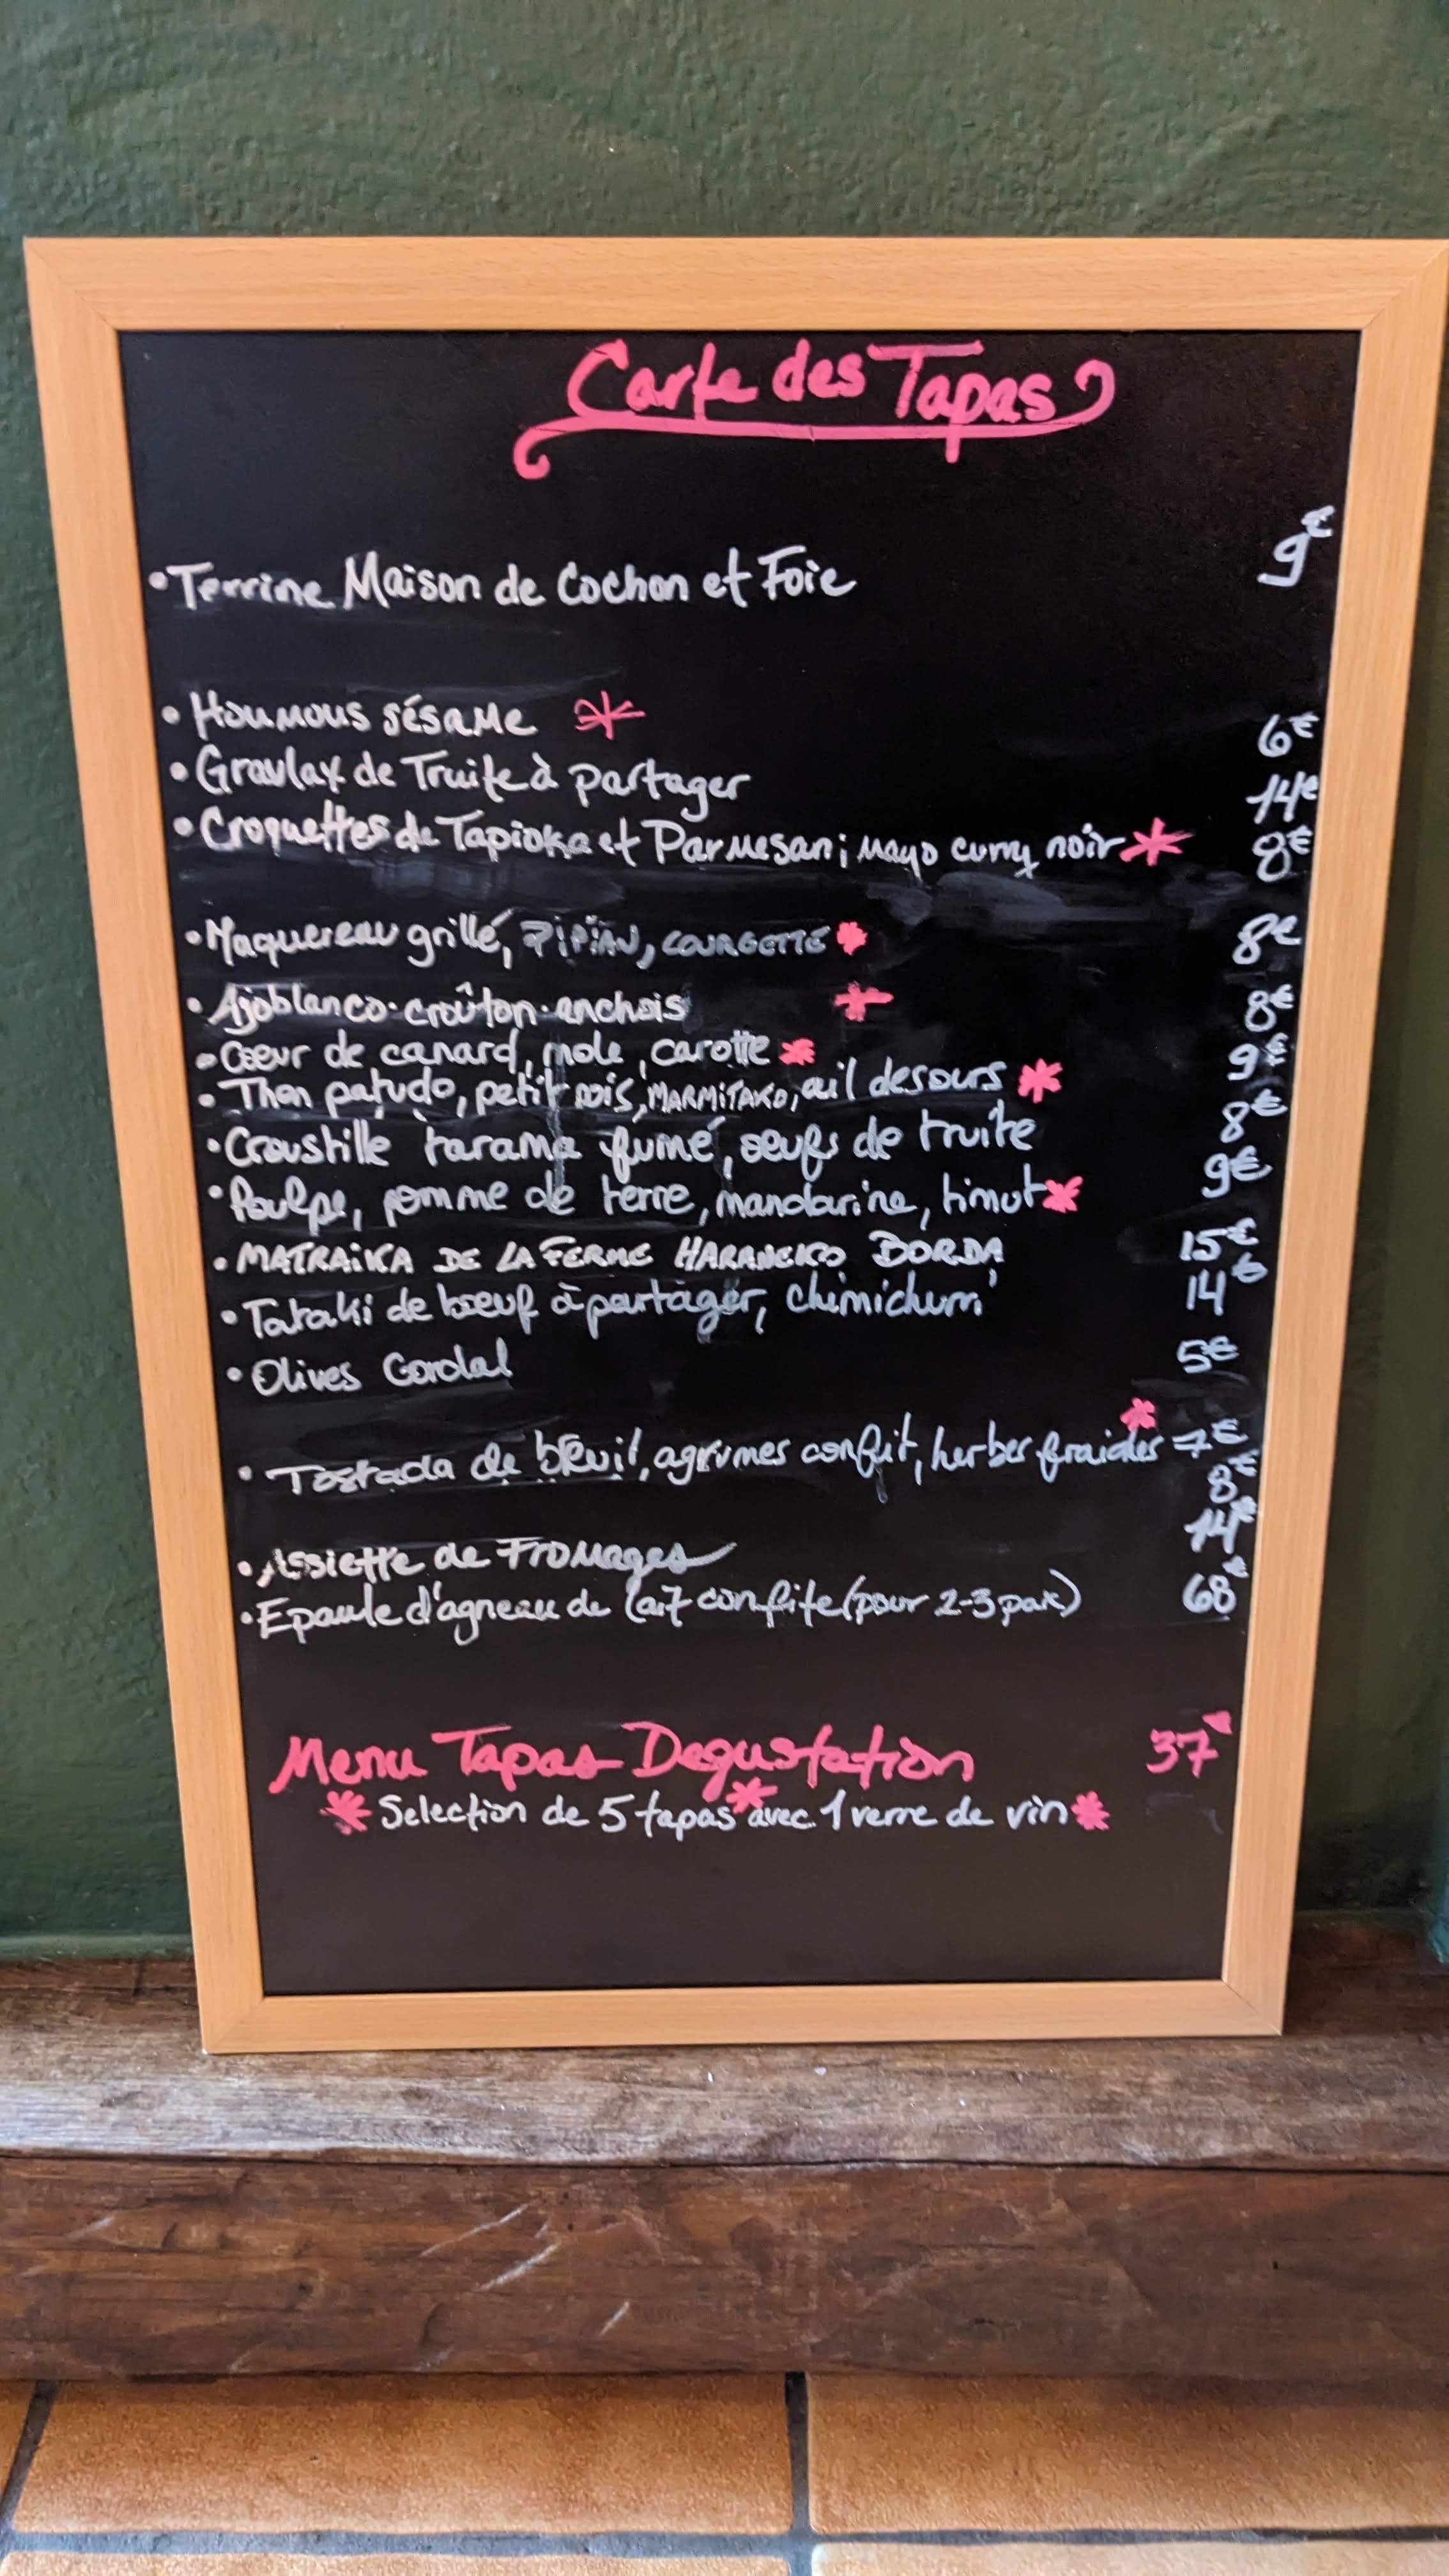 Carte des Tapas
• Terrine Maison de Cochon et Foie 9€
• Houmous sésame * 6€
• Gravlax de Truite à partager 14€
• Croquettes de Tapioka et Parmesan ; mayo curry noir * 8€
• Maquereau grillé, PIPIAN, COURGETTE * 8€
• Ajoblanco · croûton · anchois * 8€
• Coeur de canard, mole, carotte * 9€
• Thon patudo, petit pois, MARMITAKO, ail des ours * 8€
• Croustille tarama fumé, oeufs de truite 9€
• Poulpe, pomme de terre, mandarine, timut * 15€
• MATRAIKA DE LA FERME HARANEKO BORDA 14€
• Tataki de boeuf à partager, chimichurri 5€
• Olives Gordal
• Tostada de breuil, agrumes confit, herbes fraiches * 7€
8€
• Assiette de Fromages 14€
• Epaule d'agneau de lait confite (pour 2-3 pax) 68€
Menu Tapas Degustation 37€
* Selection de 5 tapas * avec 1 verre de vin *